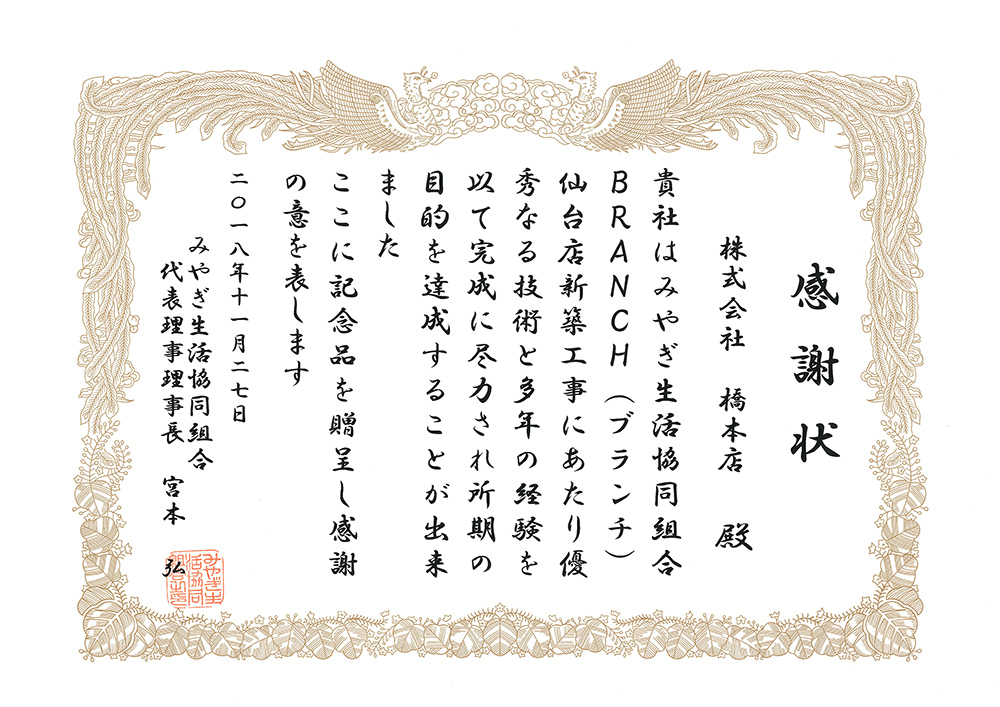 感謝状
株式会社 橋本店 殿
貴社はみやぎ生活協同組合
BRANCH(ブランチ)
仙台店新築工事にあたり優
秀なる技術と多年の経験を
以て完成に尽力され所期の
目的を達成することが出来
ました
ここに記念品を贈呈し感謝
の意を表します
二〇一八年十一月二七日
みやぎ生活協同組合
代表理事理事長 宮本 弘